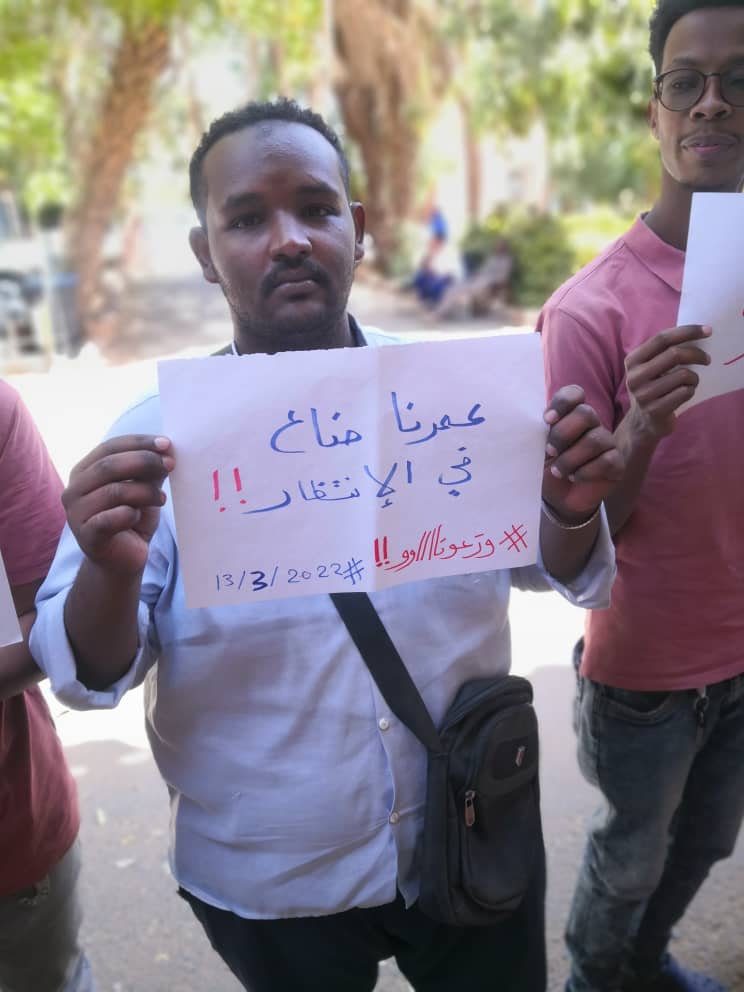 عمرنا ضاع
في الإنتظار!!
#وزعونااااوو!!
#13/3/2022